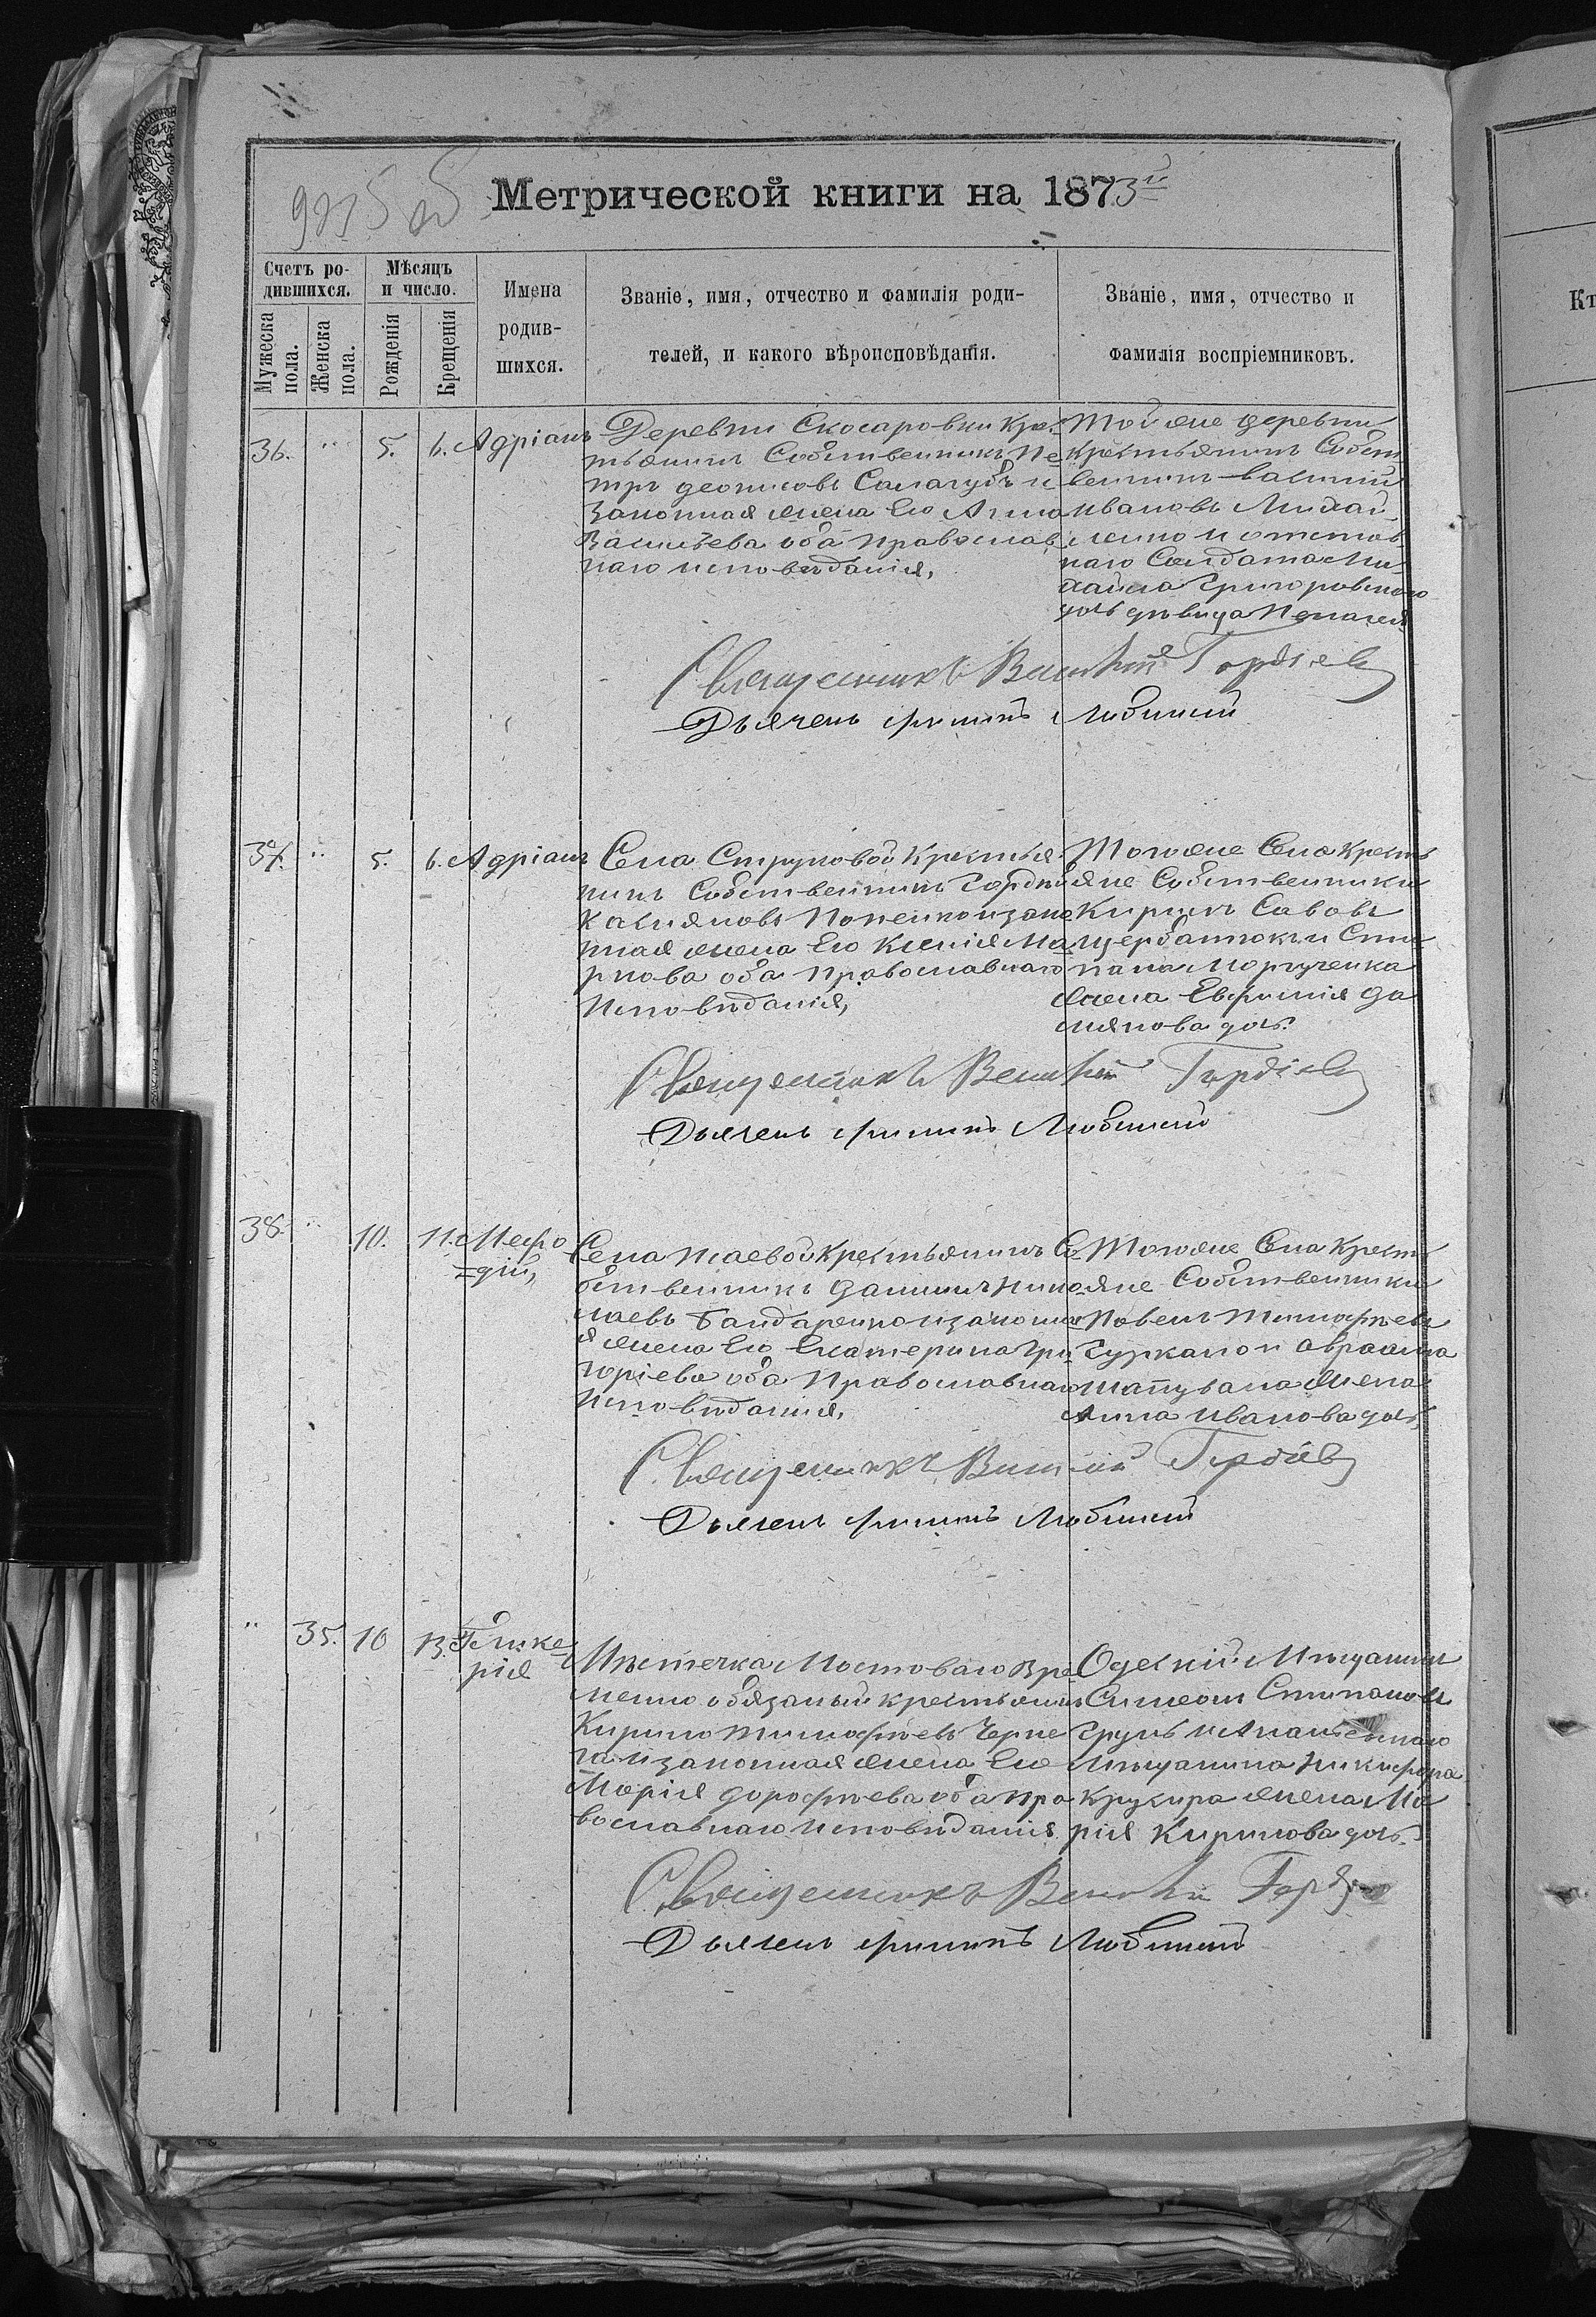 9215 об
Метрической книги на 1873й
Счетъ ро-
дившихся.
Мѣсяцъ
и число.
Имена
родив-
шихся.
Званіе, имя, отчество и фамилія роди-
телей, и какого вѣроисповѣданія.
Званіе, имя, отчество и
фамилія воспріемниковъ.
Мужеска
пола.
Женска
пола.
Рожденія
Крещенія
36. " 5. 6. Адріанъ
Деревни Скосаровки Кре-
тьянинъ Собственникъ Пе
тръ Деонисовъ Салагубъ и
законная жена Его Анна
Васильева оба православ
наго исповѣданія,
Той же деревни
крестьянинъ Собст
венникъ Василий
Ивановъ Михай
ленко и отстав
наго Солдата Ми
хайла Григоровского
дочь дѣвица Пелагея
Священникъ Василій Гордіевъ
Дьячекъ Филипъ Любинский
37. " 5. 6. Адріанъ
Села Струковой Крестья
нинъ Собственникъ Гордѣй
Касияновъ Попенко и зако
нная жена Его Ксенія Ма
ркова оба Православнаго
Исповѣданія,
Того же Села Кресть
яне Собственники
Кирилъ Савовъ
Щербатюкъ и Сте
пана Моргученка
жена Евфимія Да
миянова дочь.
Священникъ Василій Гордіевъ
Дьячекъ Филипъ Любинский
38. " 10. 11. Мефо
=дій,
Села Исаевой Крестьянинъ Со
бственникъ Даниилъ Нико
лаевъ Бандаренко и законна
я жена Его Екатерина Гри
горіева оба Православнаго
Исповѣданія,
Того же Села Кресть
яне Собственники
Павелъ Тимофѣевъ
Гуржало и Авраама
жена
Анна Иванова дочь,
Священникъ Василій Гордіевъ
Дьячекъ Филипъ Любинский
" 35. 10 13. Глике
рія
Мѣстечка Мостоваго Вре
менно обязаный крестьянинъ
Кирило Тимофѣевъ Черне
га и законная жена Его
Марія Дорофѣева оба Пра
вославнаго Исповѣданія
Одескій Мѣщанинъ
Симеонъ Стипановъ
Грунь и Ананьевскаго
Мѣщанина Никифора
жена Ма
рія Кирилова дочь.
Священникъ Василій
Дьячекъ Филипъ Любинский
Кт